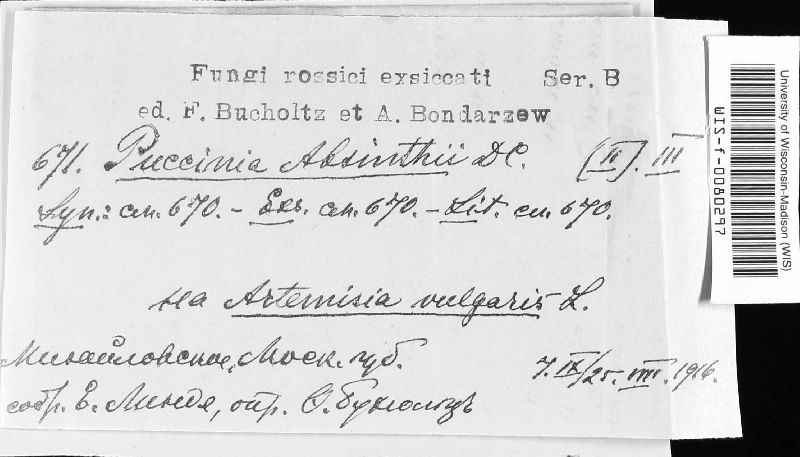 Fungi rossici exsiccati Ser. B
ed. F. Bucholtz et A. Bondarzew
671. Puccinia Absinthii DC. (II). III
Syn.: см. 670. – Exs. см. 670. – Lit. см. 670.
на Artemisia vulgaris L.
Михайловское, Моск. губ. 7. IX/25. VIII. 1916.
собр. Е. Линде, опр. Ѳ. Бухгольцъ
University of Wisconsin-Madison (WIS)
WIS-f-0080297